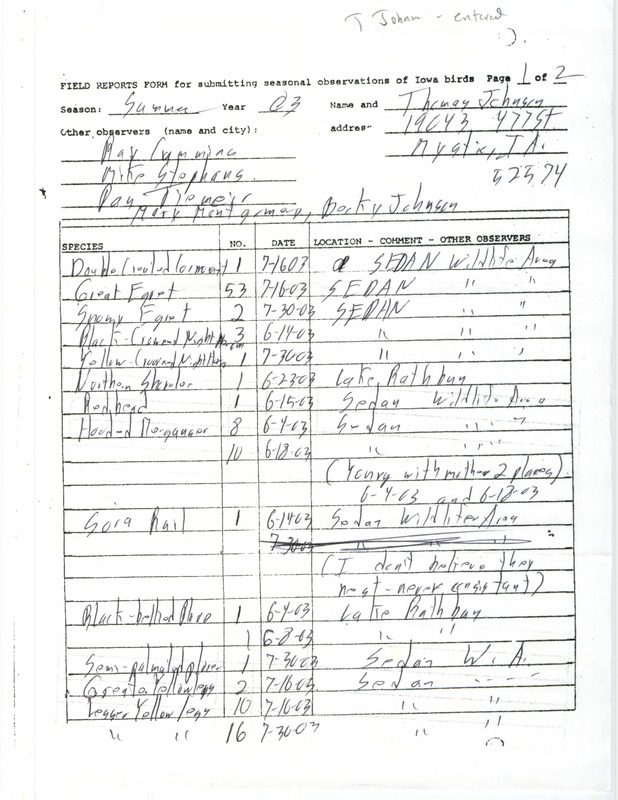 T Johnson - entered
:).
FIELD REPORTS FORM for submitting seasonal observations of Iowa birds Page 1 of 2
Season: Summer Year 03 Name and Thomas Johnson
Other observers (name and city): address 19043 477 St
Ray Cummins Mystic, IA.
Mike Stephens. 52574
Dan
Mary Montgomery, Becky Johnson
SPECIES NO. DATE LOCATION - COMMENT - OTHER OBSERVERS
Double Crested Cormorant 1 7-16-03 SEDAN Wildlife Area
Great Egret 53 7-16-03 SEDAN " "
Snowy Egret 2 7-30-03 SEDAN " "
Black-Crowned Night Heron 3 6-14-03 " " "
Yellow-Crowned Night Heron 1 7-30-03 " " "
Northern Shoveler 1 6-23-03 Lake Rathbun
Redhead 1 6-15-03 Sedan Wildlife Area
Hooded Merganser 8 6-4-03 Sedan " "
10 6-18-03 " "
(Young with mother 2 places)
6-4-03 and 6-18-03
Sora Rail 1 6-14-03 Sedan Wildlife Area
7-30-03 " " "
(I don't believe they
nest-never consistant)
Black-bellied Plover 1 6-4-03 Lake Rathbun
1 6-8-03 " "
Semi-palmated plover 1 7-30-03 Sedan W.A.
Greater Yellowlegs 2 7-16-03 Sedan " "
Lesser Yellowlegs 10 7-16-03 " "
" " 16 7-30-03 " "